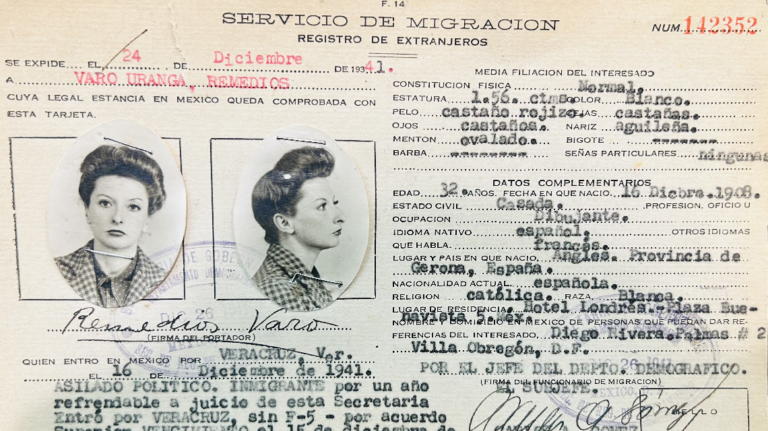 F. 14
SERVICIO DE MIGRACION
REGISTRO DE EXTRANJEROS
NUM. 142352
SE EXPIDE EL 24 DE Diciembre DE 1941.
A VARO URANGA, REMEDIOS
CUYA LEGAL ESTANCIA EN MEXICO QUEDA COMPROBADA CON
ESTA TARJETA.
Remedios Varo
(FIRMA DEL PORTADOR)
QUIEN ENTRO EN MEXICO POR VERACRUZ, Ver.
EL 16 DE Diciembre de 1941.
ASILADO POLITICO. INMIGRANTE por un año
refrendable a juicio de esta Secretaría
Entró por VERACRUZ, sin F-5 - por acuerdo
VENCIMIENTO el 15 de diciembre de
MEDIA FILIACION DEL INTERESADO
CONSTITUCION FISICA Normal.
ESTATURA 1.56. ctms. COLOR Blanco.
PELO castaño rojizo. CEJAS castañas.
OJOS castaños. NARIZ aguileña.
MENTON ovalado. BIGOTE --------
BARBA --------- SEÑAS PARTICULARES ningunas
DATOS COMPLEMENTARIOS
EDAD 32 AÑOS. FECHA EN QUE NACIO, 16 Dicbre. 1908.
ESTADO CIVIL Casada. PROFESION, OFICIO U
OCUPACION Dibujante.
IDIOMA NATIVO español. OTROS IDIOMAS
QUE HABLA. francés.
LUGAR Y PAIS EN QUE NACIO, Anglés. Provincia de
Gerona, España.
NACIONALIDAD ACTUAL española.
RELIGION católica. RAZA, Blanca.
LUGAR DE RESIDENCIA, Hotel Londres.-Plaza Bue-
navista 5. Mex.
NOMBRE Y DOMICILIO EN MEXICO DE PERSONAS QUE PUEDAN DAR RE-
FERENCIAS DEL INTERESADO, Diego Rivera. Palmas # 2
Villa Obregón, D.F.
POR EL JEFE DEL DEPTO. DEMOGRAFICO.
(FIRMA DEL FUNCIONARIO DE MIGRACION)
EL SUBJEFE.